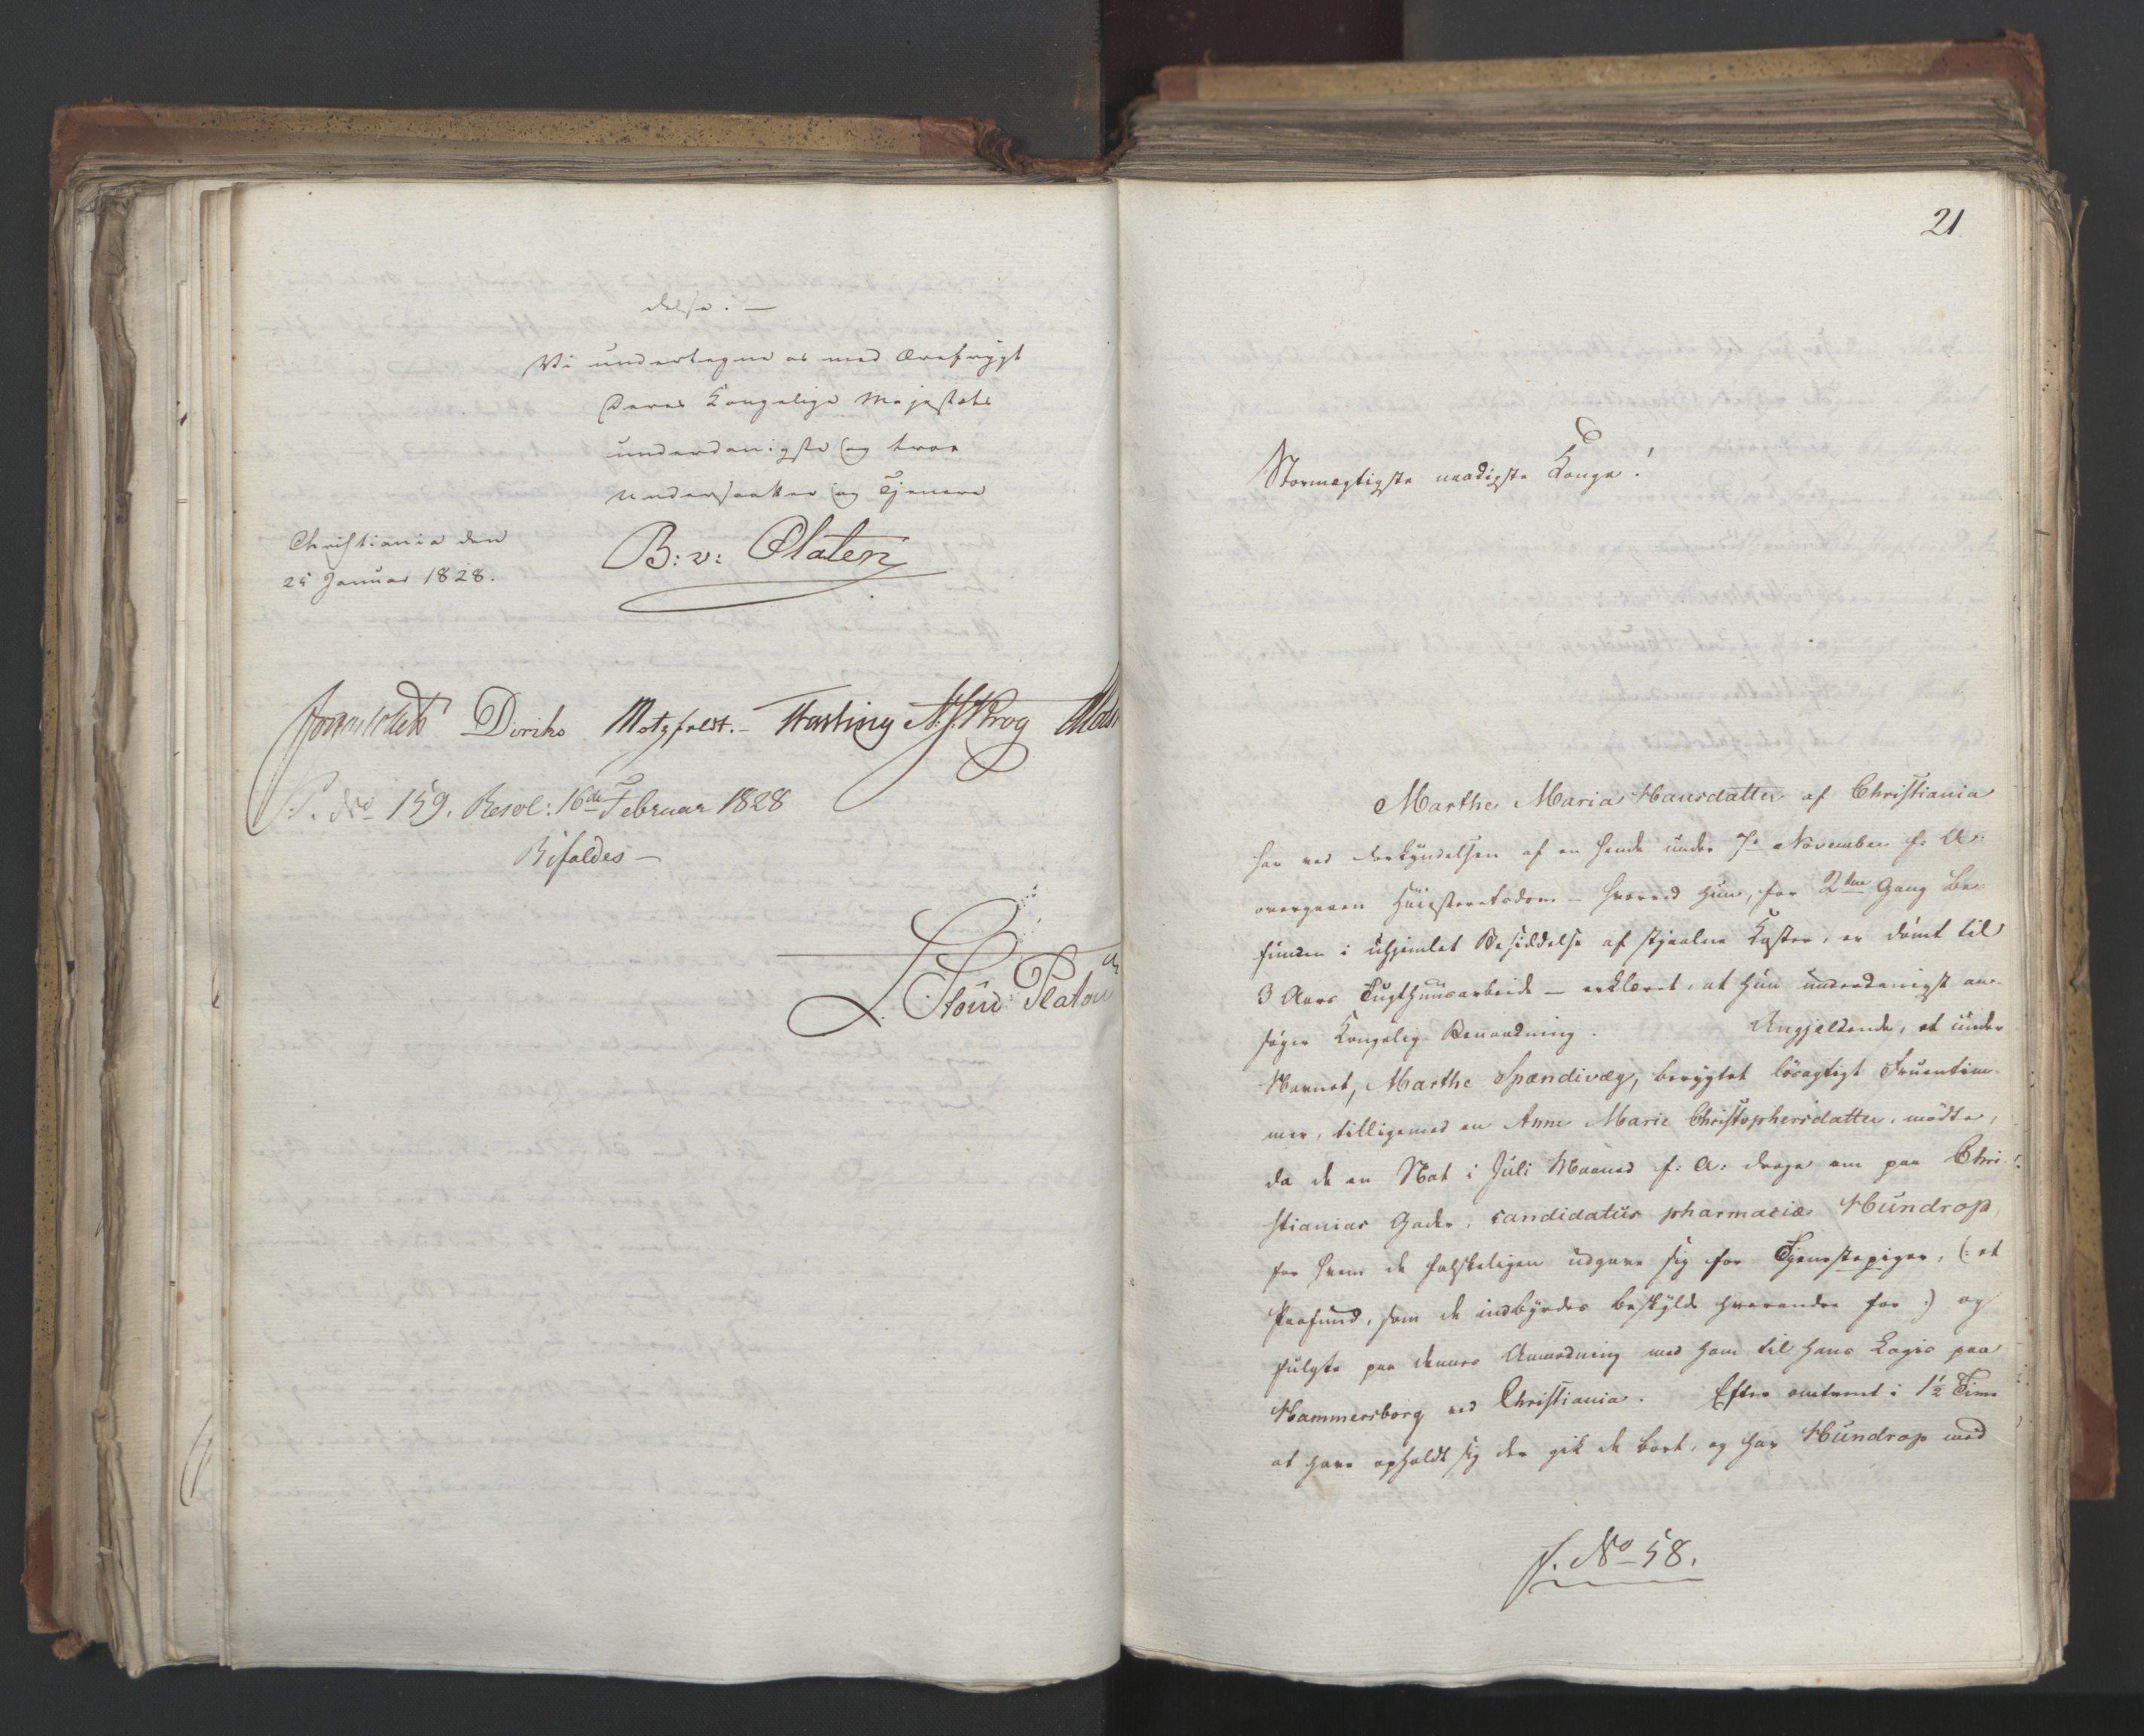 delse. —
Vi undertegne os med Ærefrygt
Deres Kongelige Majestæts
underdanigste og troe
Undersaatter og Tjenere
Christiania den
25 Januar 1828.
B: v: Platen
Diriks Motzfeldt. – Fasting N. J. Krog
P. No 159. Resol: 16de Februar 1828
Bifaldes —
L. Stoud Platou
21
Stormægtigste naadigste Konge!
Marthe Maria Hansdatter af Christiania
har ved Forkyndelsen af en hende under 7de November f: A:
overgaaen Høiesteretsdom – hvorved hun, for 2den Gang be-
funden i uhjemlet Besiddelse af stjaalne Koster, er dømt til
3 Aars Tugthuusarbeide — erklæret, at hun underdanigst an-
søger Kongelig Benaadning. Angjeldende, et under
Navnet, Marthe Spændivæg, berygtet løsagtigt Fruentim-
mer, tilligemed en Anne Marie Christophersdatter, mødte,
da de en Nat i Juli Maaned f: A: droge om paa Chri-
stianias Gader, candidatus pharmaciæ Hundrop,
for hvem de falskeligen udgave sig for Tjenestepiger, (: et
Paafund, som de indbyrdes beskylde hverandre for :) og
fulgte paa dennes Anmodning med ham til hans Logis paa
Hammersborg ved Christiania. Efter omtrent i 1½ Time
at have opholdt sig der gik de bort, og har Hundrop med
J. No 58.